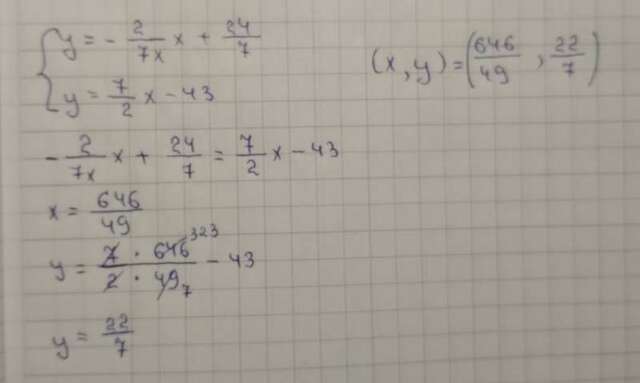 y = - 2/7x x + 24/7
y = 7/2 x - 43
(x, y) = (646/49, 22/7)
- 2/7x x + 24/7 = 7/2 x - 43
x = 646/49
y = 7 · 646 323 / 2 · 49 7 - 43
y = 22/7